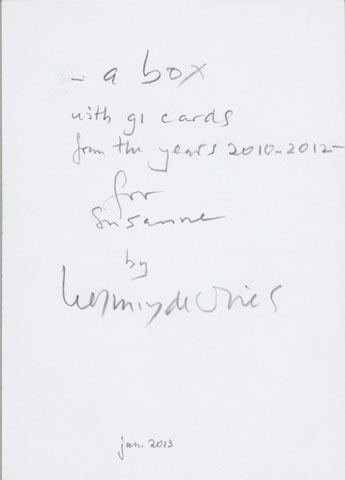 - a box
with 91 cards
from the years 2010-2012-
for
Susanne
by
herman de vries
jan. 2013